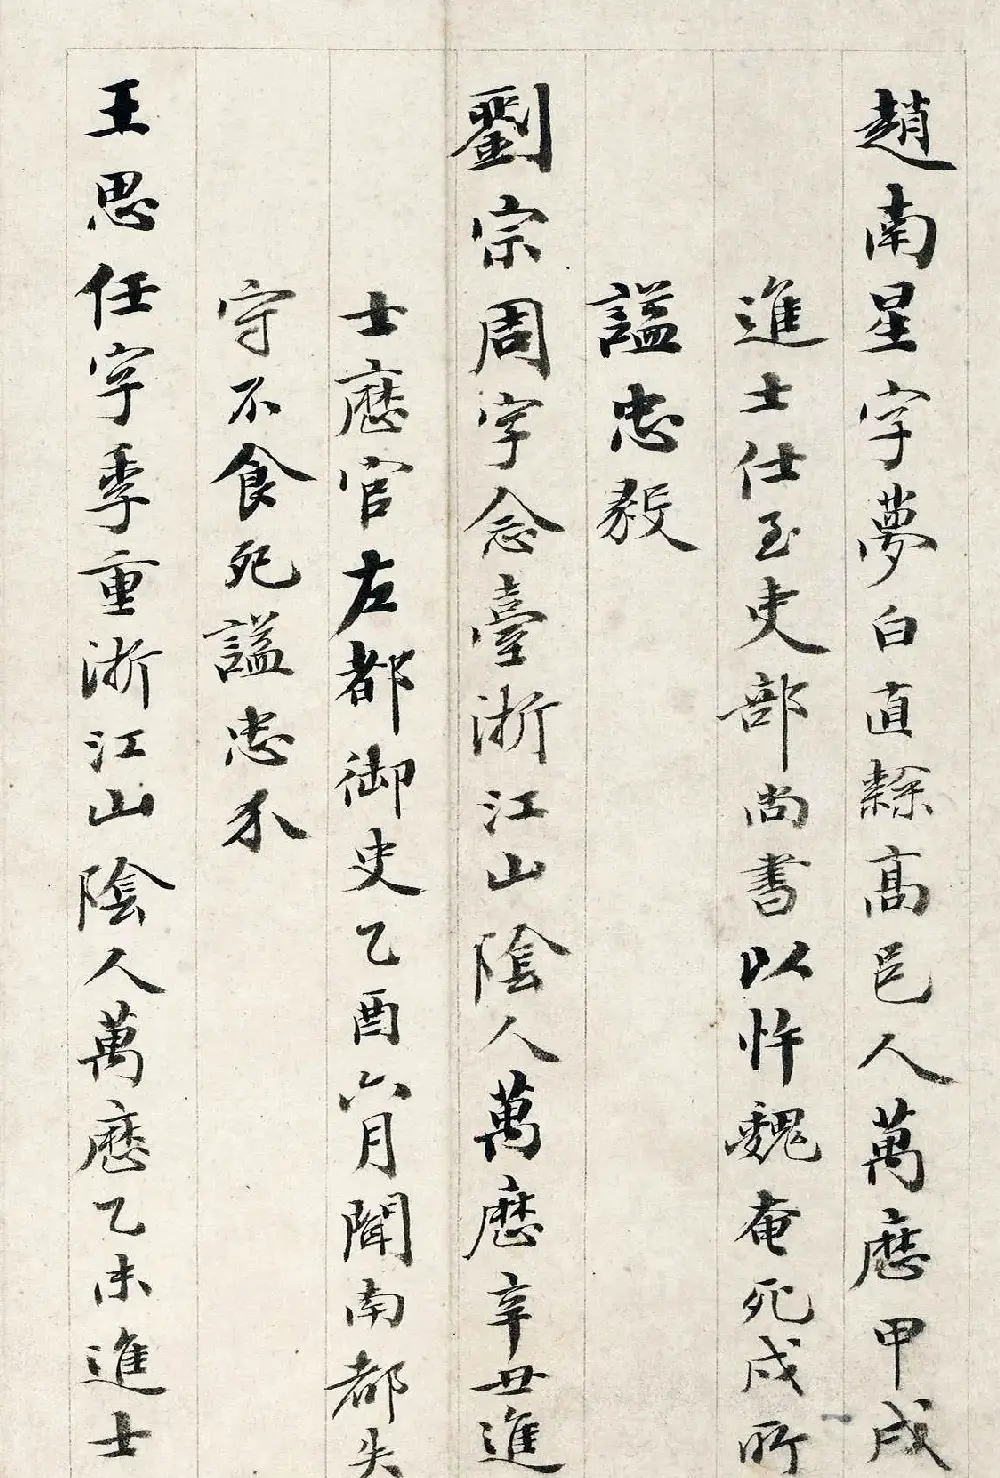 趙南星字夢白直隸髙邑人萬厯甲戌
進士仕至吏部尚書以忤魏奄死戍所
謚忠毅
劉宗周字念臺浙江山陰人萬厯辛丑進
士厯官左都御史乙酉六月聞南都失
守不食死謚忠介
王思任字季重浙江山陰人萬厯乙未進士